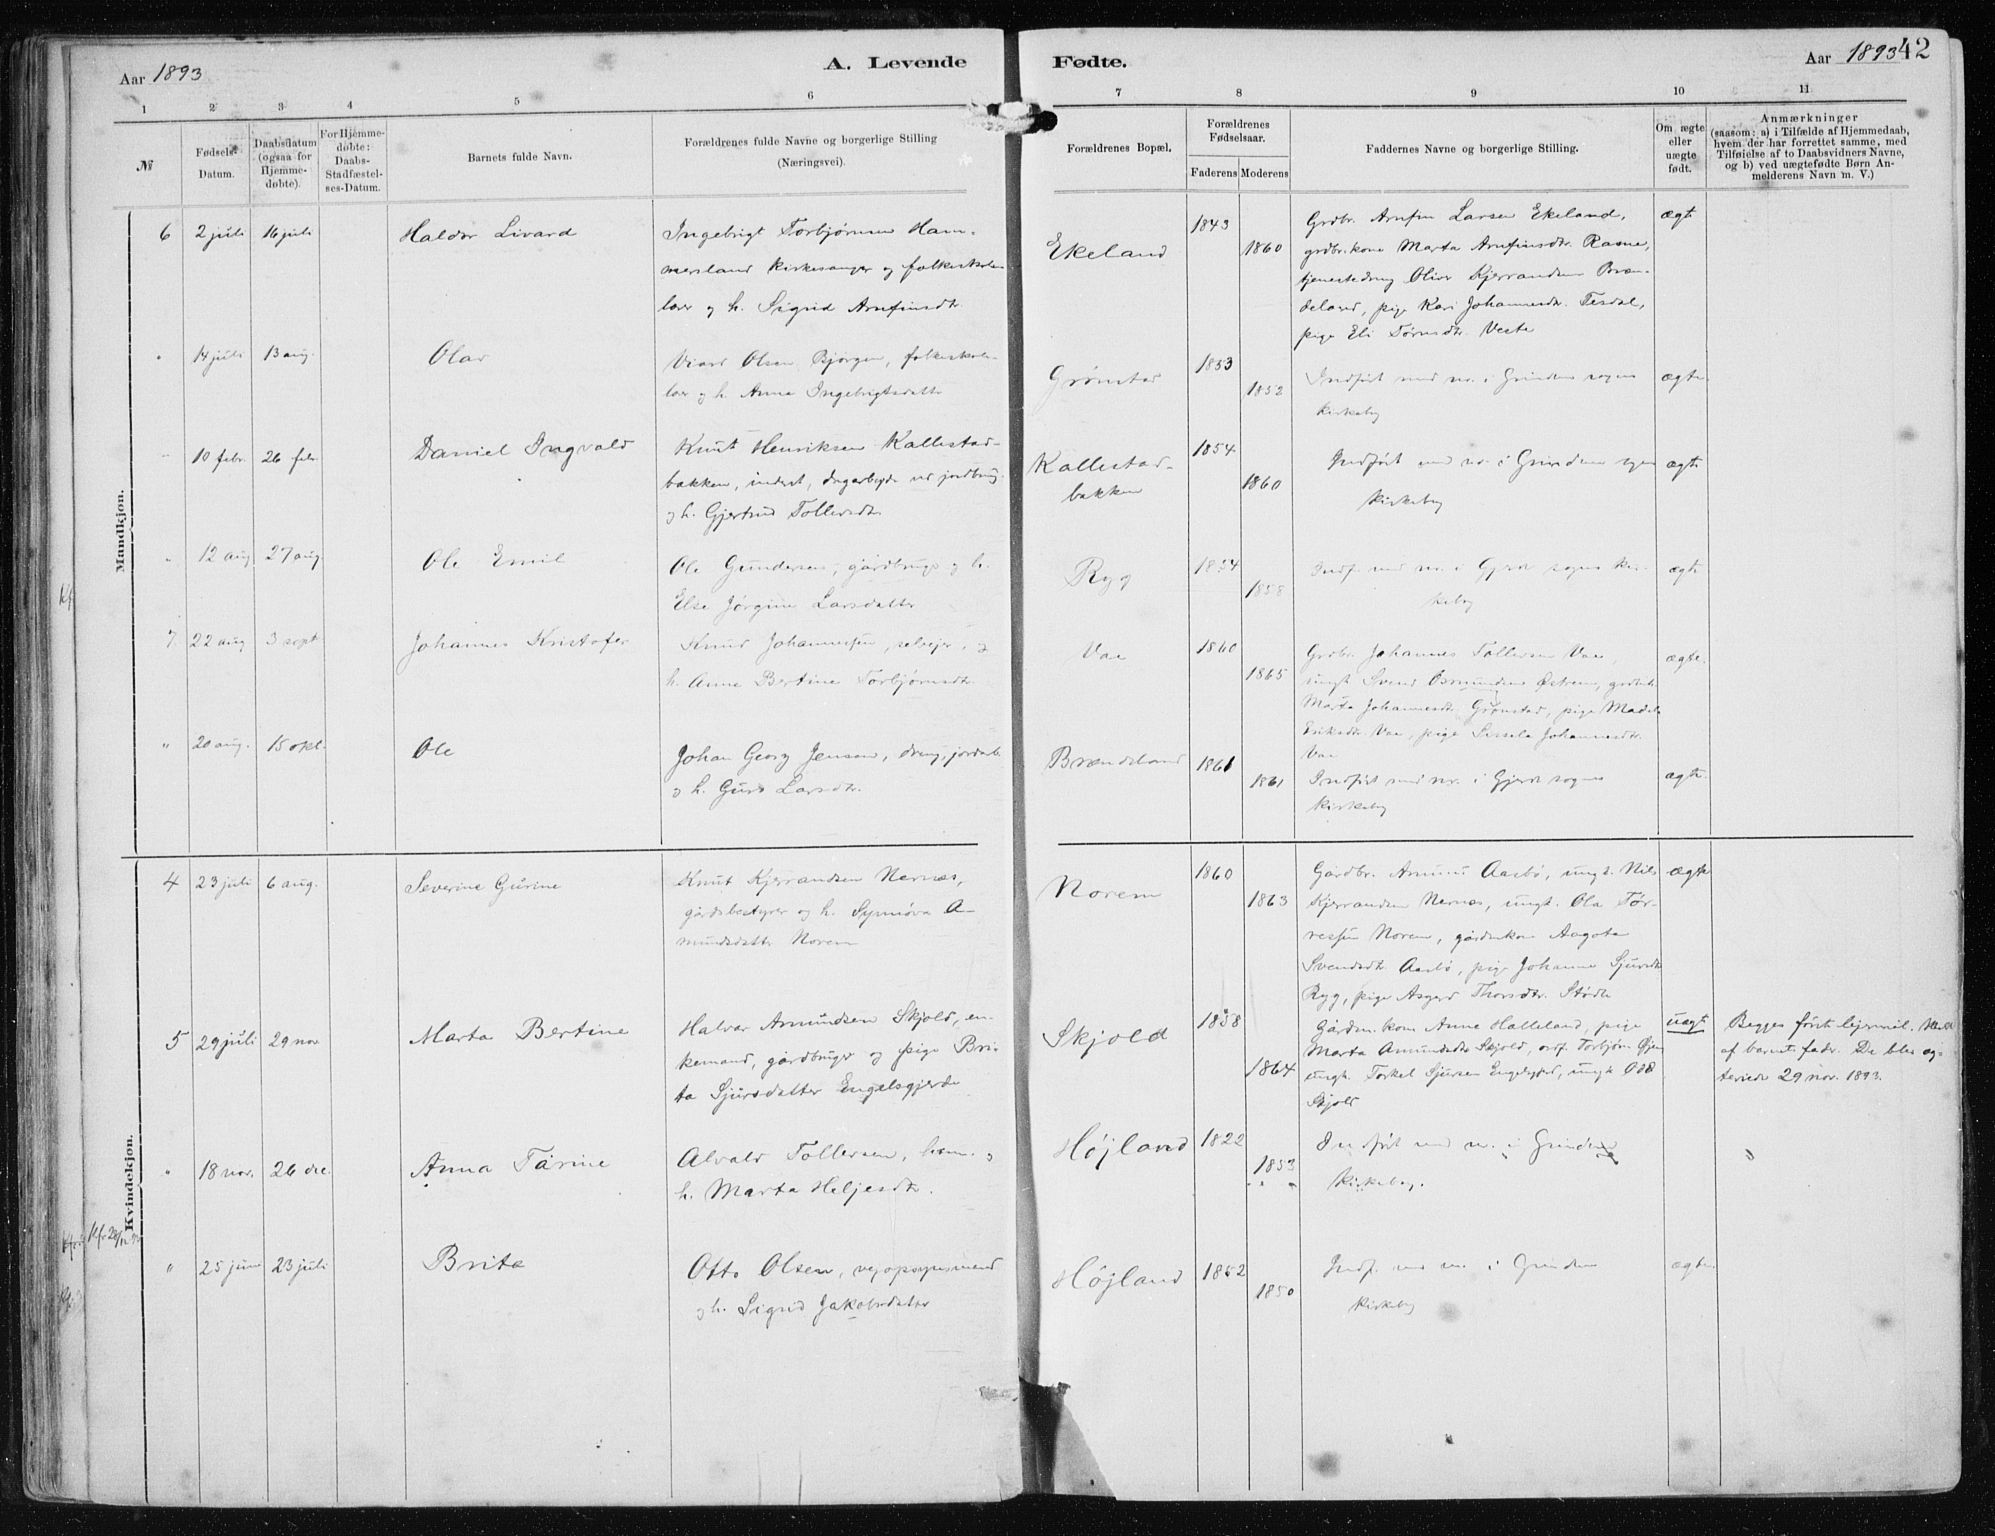 Aar 1893
A. Levende
Fødte.
Aar 1893
42
1 2 3 4 5 6 7 8 9 10 11
№
Fødsels-
Datum.
Daabsdatum
(ogsaa for
Hjemme-
døbte).
For Hjemme-
døbte:
Daabs-
Stadfæstel-
ses-Datum.
Barnets fulde Navn.
Forældrenes fulde Navne og borgerlige Stilling
(Næringsvei).
Forældrenes Bopæl.
Forældrenes
Fødselsaar.
Faderens Moderens
Faddernes Navne og borgerlige Stilling.
Om ægte
eller
uægte
født.
Anmærkninger
(saasom: a) i Tilfælde af Hjemmedaab,
hvem der har forrettet samme, med
Tilføielse af to Daabsvidners Navne,
og b) ved uægtefødte Børn An-
melderens Navn m. V.)
Mandkjøn.
6 2 juli 16 juli Haldor Livard
Ingebrigt Torbjørnsen Ham-
mersland kirkesanger og folkeskole-
lær og h. Sigrid Arnfinsdtr.
Ekeland 1843 1860
Grdbr. Arnfin Larsen Ekeland,
grdbr.kone Marta Arnfinsdtr.
tjenestedreng Oliver Kjerrandsen Bræn-
deland, pige Kari Johannesdtr. Tesdal,
pige Eli
ægte
" 14 juli 13 aug. Olav
Olsen Bjorgen, folkeskole-
lær og h. Anna Ingebrigtsdatter
Grønstad 1853 1852
Indført med no. i Grindens sogns
kirkebog
ægte.
" 10 febr. 26 febr. Daniel Ingvald
Knut Henriksen Kallestad-
bakken, inderst, dagarbejde ved jordbrug
og h. Gjertrud Tollevsdtr.
Kallestad-
bakken
1854 1860
Indført med no. i Grindens sogns
kirkebog
ægte
" 12 aug 27 aug. Ole Emil
Ole Gundersen, gårdbruger og h.
Else Jørgine Larsdatter
Ryg 1854 1858
Indf. med no. i Gjerde sogns kir-
kebog
ægte
7. 22 aug 3 sept Johannes Kristofer
Knud Johannessen, selvejer, og
h. Anne Bertine Torbjørnsdtr.
Vae 1860 1865
Grdbr. Johannes Tollersen Vae,
ungk. Svend Osmundsen Østrem,
Marta Johannesdtr. Grønstad, pige
Eriksdtr. Vae, pige Sissela Johannesdtr.
Vae
ægte.
" 20 aug. 15 okt. Ole
Johan Georg Jensen, dreng, jordarb.
og h. Guro Larsdtr.
Brændeland 1861 1861
Indført med no. i Gjerde sogns
kirkebog
ægte.
Kvindekjøn.
4 23 juli 6 aug. Severine Gurine
Knut Kjerrandsen Nernes,
gårdsbestyrer og h. Synnøva A-
mundsdatter Norem
Norem 1860 1863
Gårdbr. Amund Aasbø, ungk. Nils
Kjerrandsen Nernes, ungk. Ola Tør-
ressen Norem, gårdmkone Aagota
Svendsdtr. Aasbø, pige Johanna Sjursdtr
Ryg, pige Asgerd Thorsdtr. Stødle
ægte
5 29 juli 29 nov Marta Bertine
Halvar Amundsen Skjold, en-
kemand, gårdbruger og pige Bri-
ta Sjursdatter Engelsgjerde
Skjold 1838 1864
Gårdm.kone Anne Halleland, pige
Marta Amundsdtr Skjold, Torbjørn
ungk. Torkel Sjursen Engelsgjerd, ungk. Odd
Skjold
uægt
Begges første lejermål.
af barnets fader. De blev æg-
teviede 29 nov. 1893.
" 18 nov. 26 dec Anna Tårine
Alvald Tollersen, og
h. Marta Heljesdtr.
Højland 1822 1853
Indført med no. i Grinden
kirkebog.
" 25 juni 23 juli Brite
Otto Olsen, vejopsynsmand
og h. Sigrid Jakobsdatter
Højland 1852 1850
Indf. med no. i Grinden
kirkebog
ægte.